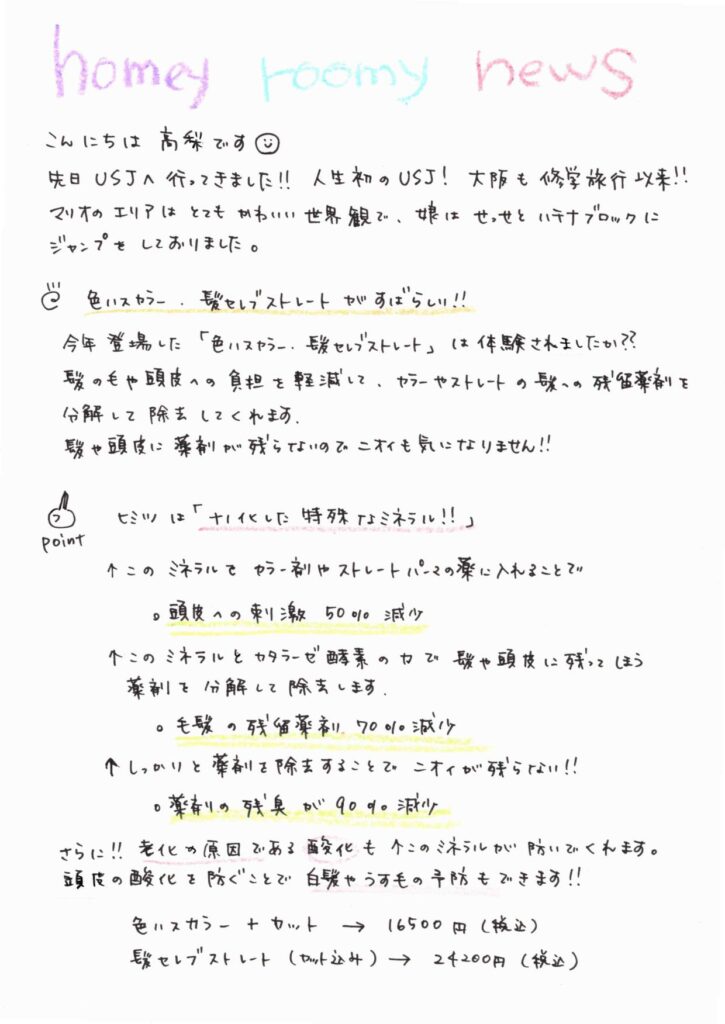 homey roomy news
こんにちは 高梨です
先日 USJへ 行ってきました!! 人生初のUSJ! 大阪も 修学旅行以来!!
マリオの エリアは とても かわいい 世界観で、娘は せっせと ハテナブロックに
ジャンプを しておりました。
色いスカラー、髪セレブストレート がすばらしい!!
今年 登場した 「色いスカラー、髪セレブストレート」は 体験されましたか??
髪の毛や頭皮への 負担を 軽減して、カラーやストレートの 髪への 残留薬剤を
分解して 除去 してくれます.
髪や頭皮に 薬剤が 残らないので ニオイも気になりません!!
point
ヒミツ は「ナノ化した 特殊なミネラル!!」
↑この ミネラルを カラー剤や ストレートパーマの薬に入れることで
。頭皮への刺激 50% 減少
↑このミネラルと カタラーゼ酵素の力で 髪や頭皮に残ってしまう
薬剤を 分解して 除去します.
。毛髪の残留薬剤 70%減少
↑しっかりと薬剤を除去することで ニオイが残らない!!
。薬剤の残臭が90%減少
さらに!! 老化の原因である 酸化も ↑このミネラルが 防いでくれます。
頭皮の酸化を防ぐことで 白髪やうすもの予防もできます!!
色いスカラー + カット → 16500円(税込)
髪セレブストレート (カット込み) → 24200円(税込)